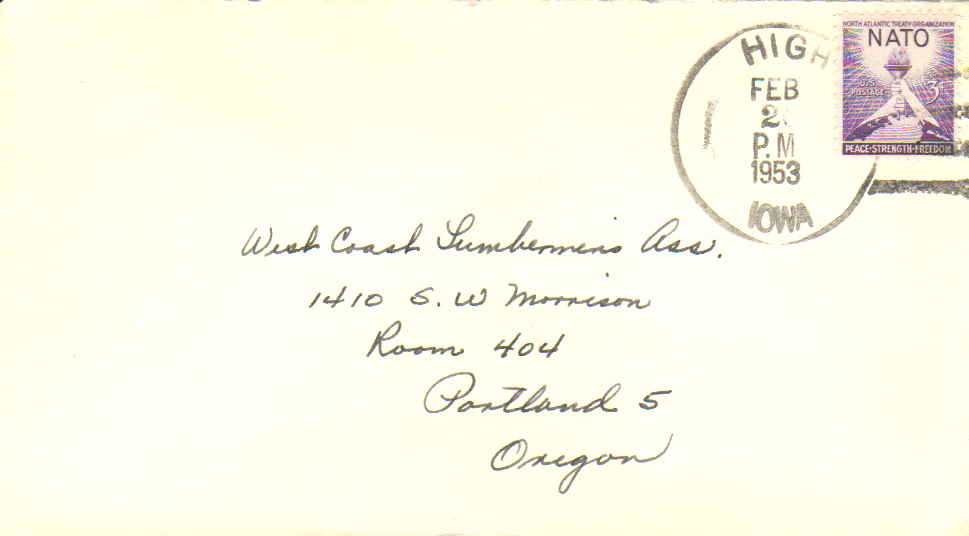 HIGH
FEB
2
P.M
1953
IOWA
NORTH ATLANTIC TREATY ORGANIZATION
NATO
U.S. POSTAGE
3¢
PEACE-STRENGTH-FREEDOM
West Coast Lumbermens Ass.
1410 S. W Morrison
Room 404
Portland 5
Oregon